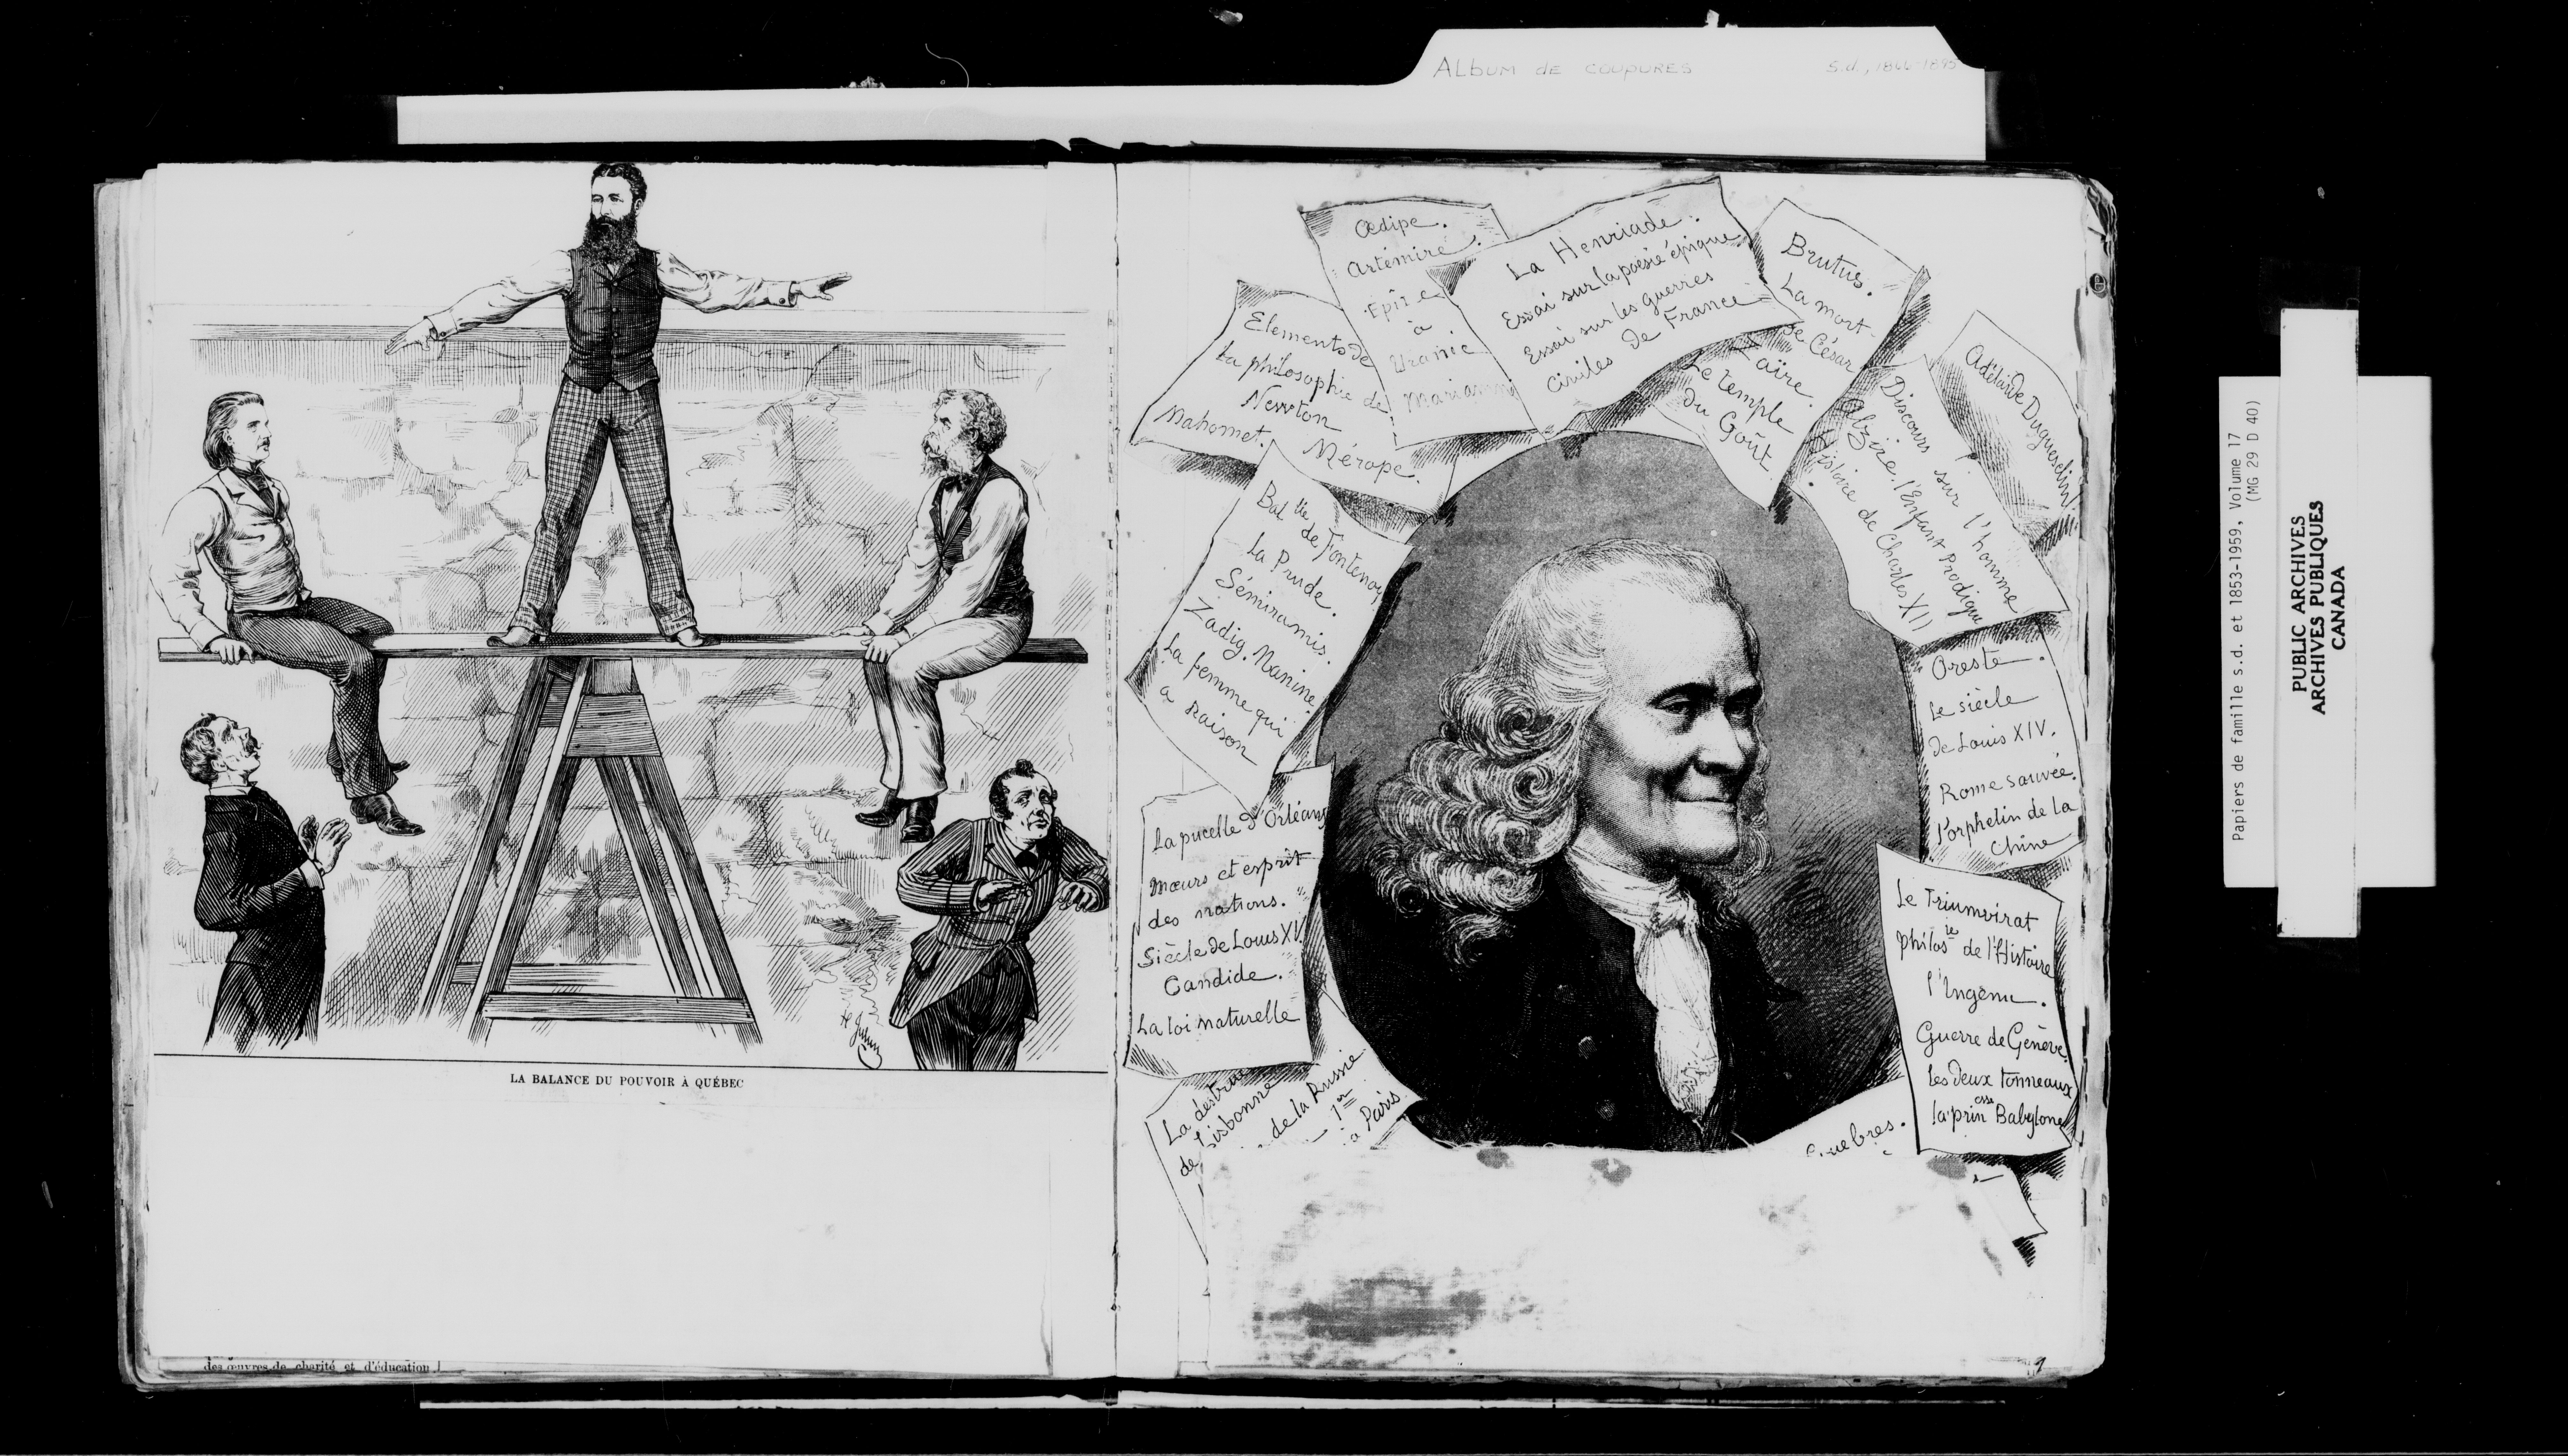 ALBUM DE COUPURES
LA BALANCE DU POUVOIR À QUÉBEC
des œuvres de charité et d'éducation
Œdipe.
Artémire.
Epitre
à
Uranie
Mariamne
La Henriade.
Essai sur la poésie épique
Essai sur les guerres
civiles de France
Brutus.
La mort
de César
aïre.
Le temple
du Goût
Adélaïde Duguesclin
Discours sur l'homme
Alzire. l'Enfant Prodigue
histoire de Charles XII
Elements de
la philosophie de
Newton
Mahomet.
Mérope.
Bat lle de Fontenoy
La Prude.
Sémiramis.
Zadig. Nanine.
La femme qui
a raison
Oreste.
Le siècle
de Louis XIV.
Rome sauvée.
l'orphelin de la
Chine
La pucelle d'Orléans
Mœurs et esprit
des nations.
Siècle de Louis XV
Candide.
La loi naturelle
Le Triumvirat
philos ie de l'Histoire
l'Ingénu.
Guerre de Genève.
Les deux tonneaux
la prin esse Babylone
La destruc
de Lisbonne
de la Russie
1er
à Paris
de
Guebres.
Papiers de famille s.d. et 1853-1959, Volume 17
(MG 29 D 40)
PUBLIC ARCHIVES
ARCHIVES PUBLIQUES
CANADA